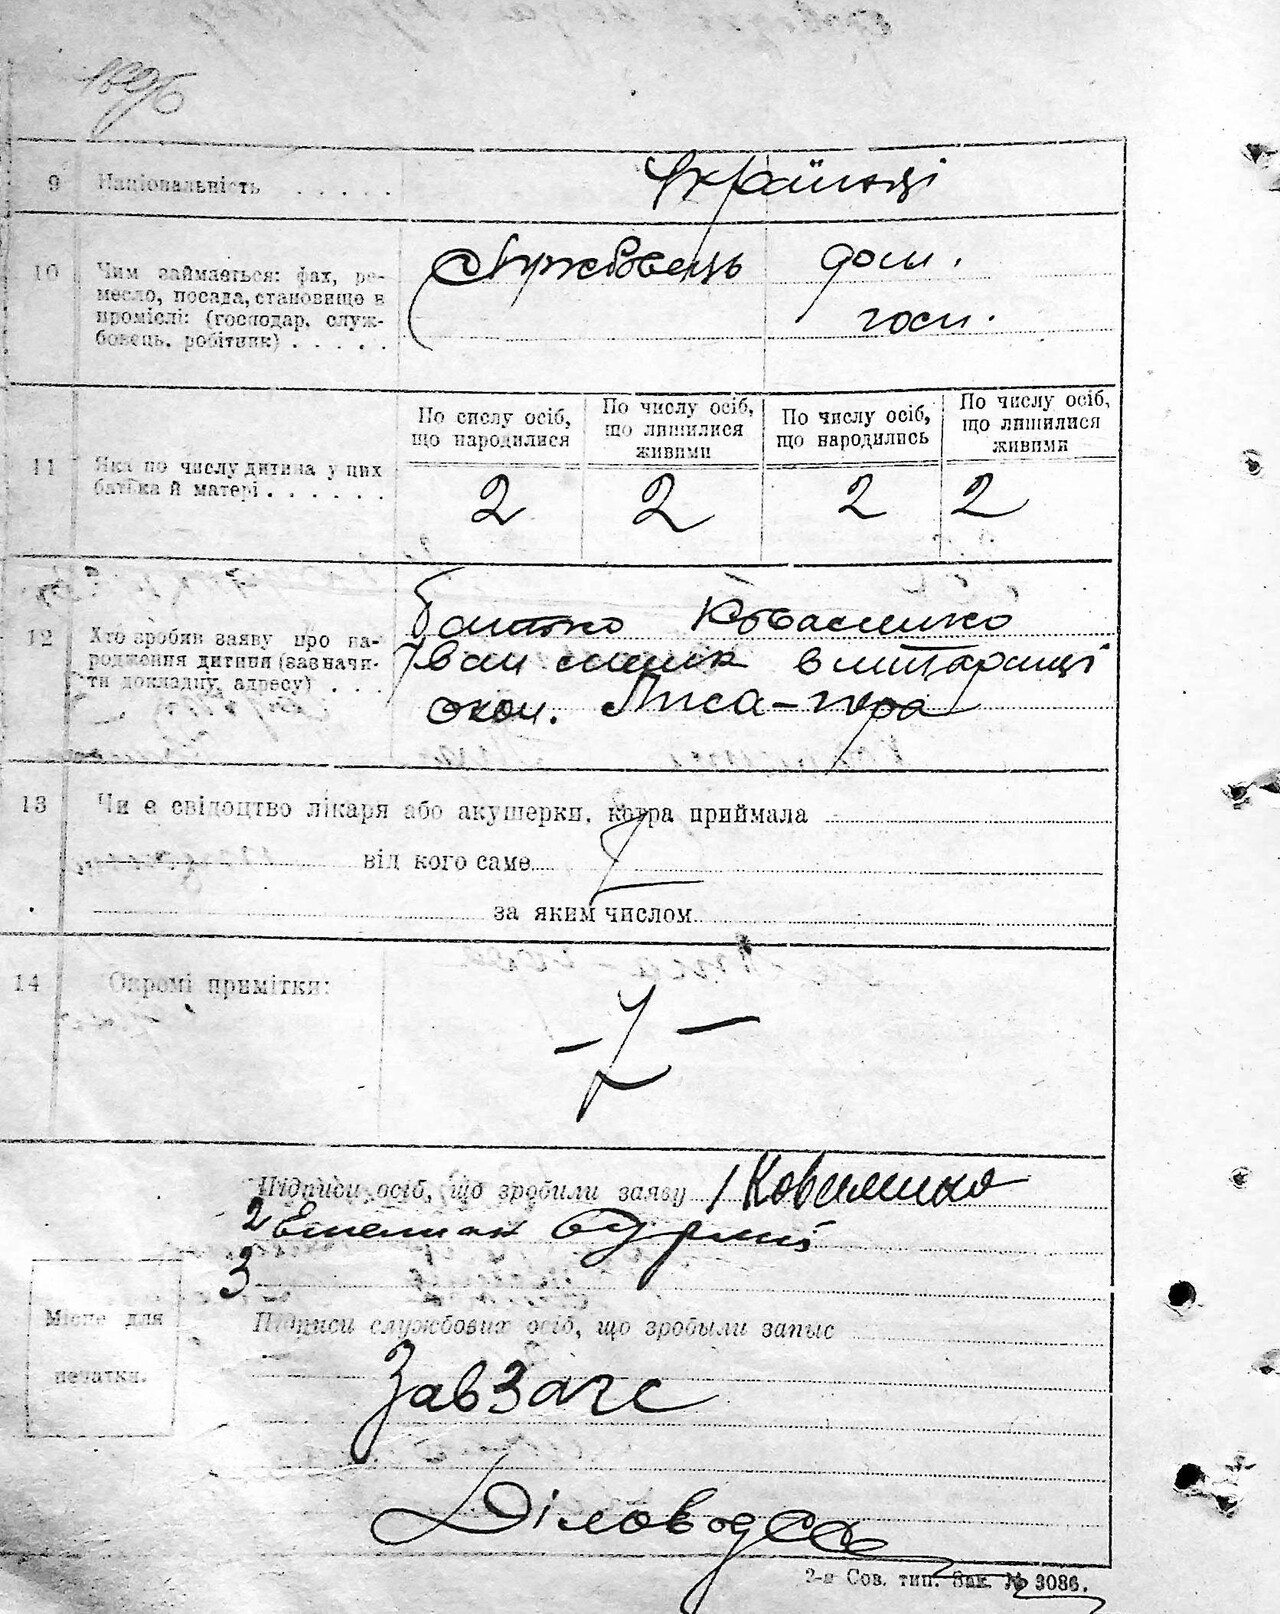 1696
9 Національність . . . . . Українці
10 Чим займається: фах, ре-
месло, посада, становище в
проміслі: (господар, служ-
бовець, робітник) . . . . .
Службовець дом.
госп.
11 Яка по числу дитина у них
батька й матері . . . . . .
По сислу осіб,
що народилися
По числу осіб,
що лишилися
живими
По числу осіб,
що народились
По числу осіб,
що лишилися
живими
2 2 2 2
12 Хто зробив заяву про на-
родження дитини (зазначи-
ти докладну, адресу) . . .
батько Коваленко
Іван
окол. Лиса-гора
13 Чи є свідоцтво лікаря або акушерки, котра приймала
від кого саме
за яким числом
14 Окромі примітки:
Підписи осіб, що зробили заяву 1 Коваленко
2 Емельян
3
Місце для
печатки.
Підписи службових осіб, що зробыли запыс
ЗавЗагс
Діловод
2-я Сов. тип. Зак. № 3086.